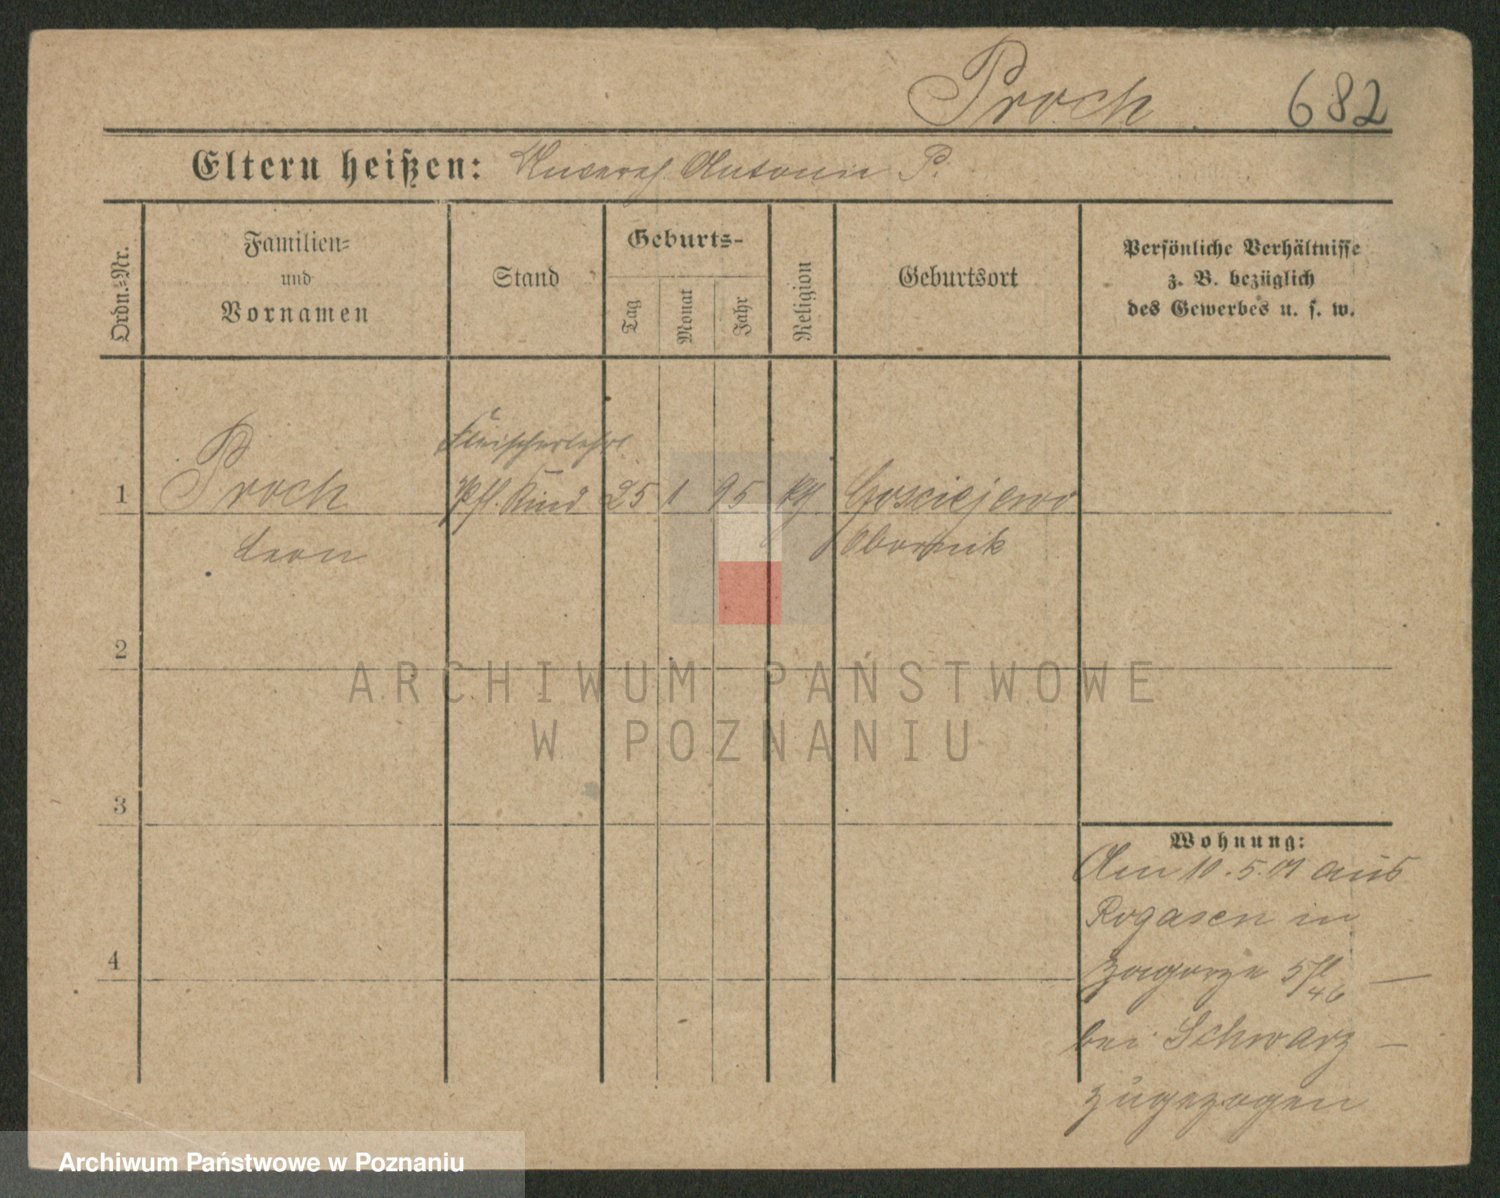 Proch 682
Eltern heißen: Antonie P.
Ordn.-Nr.
Familien-
und
Vornamen
Stand
Geburts-
Tag
Monat
Jahr
Religion
Geburtsort
Persönliche Verhältnisse
z. B. bezüglich
des Gewerbes u. s. w.
Fleischerlehrl.
1 Proch Pfl. Kind 25 1 95 Gosciejewo
Leon Obornik
2
3
4
Wohnung:
Am 10.5.01 aus
Rogasen in
Zagorze 5
bei Schwarz –
zugezogen
ARCHIWUM PAŃSTWOWE
W POZNANIU
Archiwum Państwowe w Poznaniu